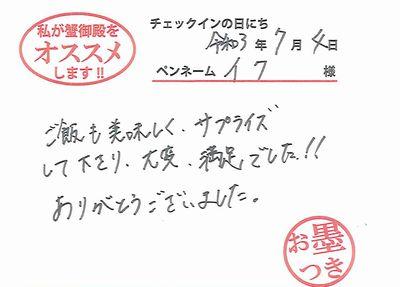 私が蟹御殿を
オススメ
します!!
チェックインの日にち
令和3年7月4日
ペンネーム イフ 様
ご飯も美味しく、サプライズ
して下さり、大変、満足でした!!
ありがとうございました。
お墨
つき